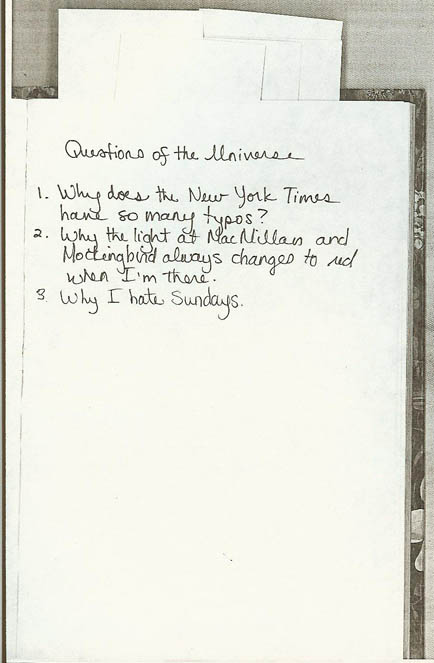 Questions of the Universe
1. Why does the New York Times
have so many typos?
2. Why the light at MacMillan and
Mockingbird always changes to red
when I'm there.
3. Why I hate Sundays.